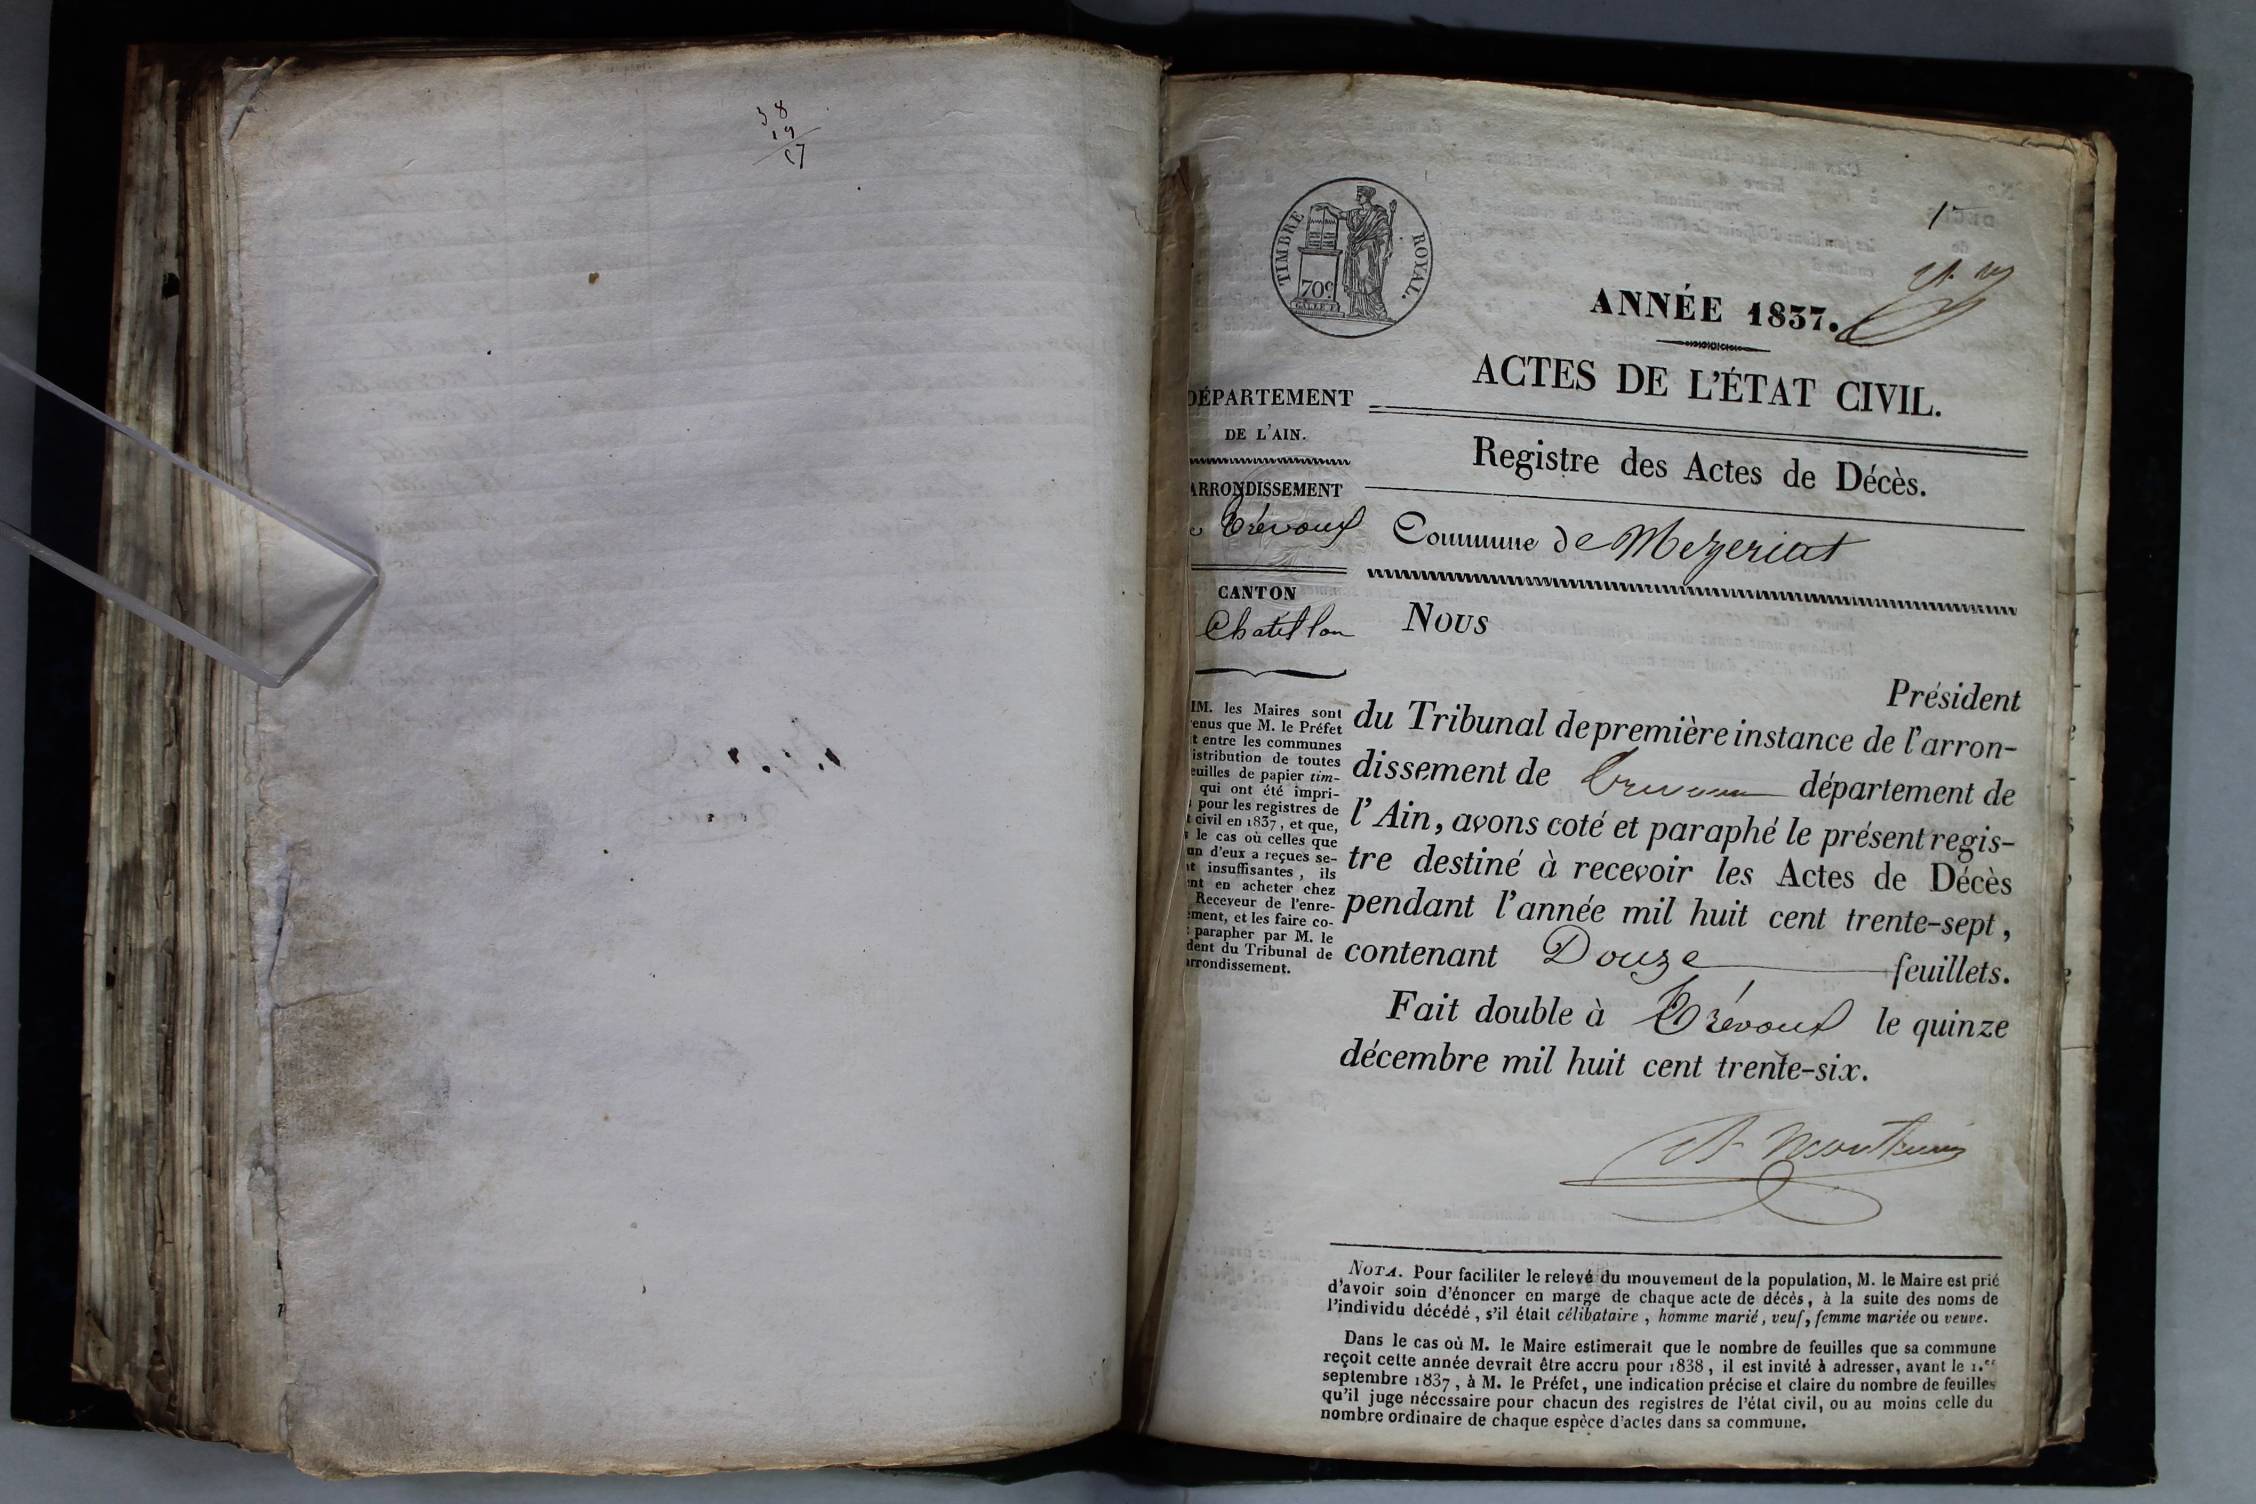 38
19
TIMBRE ROYAL.
70c
1
ANNÉE 1837.
ACTES DE L'ÉTAT CIVIL.
Registre des Actes de Décès.
Commune de Mezeriat
DÉPARTEMENT
DE L'AIN.
ARRONDISSEMENT
Trévoux
CANTON
Chatillon
MM. les Maires sont
enus que M. le Préfet
t entre les communes
istribution de toutes
euilles de papier tim-
qui ont été impri-
pour les registres de
t civil en 1837, et que,
le cas où celles que
un d'eux a reçues se-
nt insuffisantes, ils
ent en acheter chez
Receveur de l'enre-
ement, et les faire co-
parapher par M. le
dent du Tribunal de
arrondissement.
Nous
Président
du Tribunal de première instance de l'arron-
dissement de Trevoux département de
l'Ain, avons coté et paraphé le présent regis-
tre destiné à recevoir les Actes de Décès
pendant l'année mil huit cent trente-sept,
contenant Douze feuillets.
Fait double à Trévoux le quinze
décembre mil huit cent trente-six.
NOTA. Pour faciliter le relevé du mouvement de la population, M. le Maire est prié
d'avoir soin d'énoncer en marge de chaque acte de décès, à la suite des noms de
l'individu décédé, s'il était célibataire, homme marié, veuf, femme mariée ou veuve.
Dans le cas où M. le Maire estimerait que le nombre de feuilles que sa commune
reçoit cette année devrait être accru pour 1838, il est invité à adresser, avant le 1.er
septembre 1837, à M. le Préfet, une indication précise et claire du nombre de feuilles
qu'il juge nécessaire pour chacun des registres de l'état civil, ou au moins celle du
nombre ordinaire de chaque espèce d'actes dans sa commune.